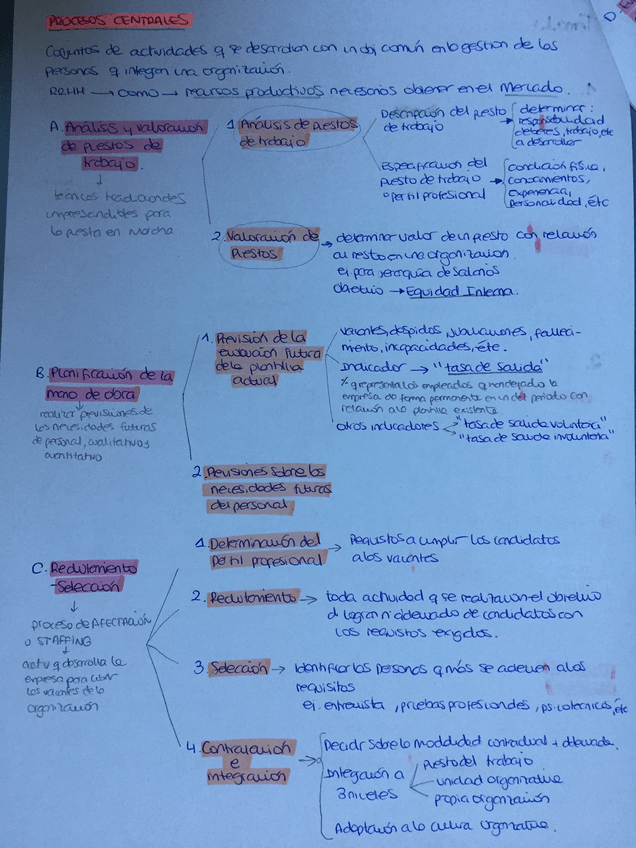 PROCESOS CENTRALES
Conjuntos de actividades q se desarrollan con un obj común en la gestión de las
personas q integran una organización.
RRHH → como → recursos productivos necesarios obtener en el Mercado.
A. Análisis y valoración
de puestos de
trabajo.
técnicas tradicionales
imprescindibles para
la puesta en marcha
1 Análisis de puestos
de trabajo
Descripción del puesto
de trabajo
determinar:
responsabilidad
deberes, trabajo, etc
a desarrollar
Especificación del
puesto de trabajo
o perfil profesional
condición física,
conocimientos,
experiencia,
personalidad, etc
2. Valoración de
puestos
→ determinar valor de un puesto con relación
al resto en una organización
ej para jerarquía de salarios
objetivo → Equidad Interna.
B. Planificación de la
mano de obra
realizar previsiones de
las necesidades futuras
de personal, cualitativo y
cuantitativo
1. Previsión de la
evolución futura
de la plantilla
actual
vacantes, despidos, jubilaciones, falleci-
miento, incapacidades, etc.
Indicador → "tasa de salida"
% q representa los empleados q han dejado la
empresa de forma permanente en un det periodo con
relación a la plantilla existente
otros indicadores
"tasa de salida voluntaria"
"tasa de salida involuntaria"
2. Previsiones sobre las
necesidades futuras
del personal
C. Reclutamiento
Selección
proceso de AFECTACIÓN
o STAFFING
activ q desarrolla la
empresa para cubrir
las vacantes de la
organización
1. Determinación del
perfil profesional
→ Requisitos a cumplir los candidatos
a las vacantes
2. Reclutamiento → toda actividad q se realiza con el objetivo
d lograr nº adecuado de candidatos con
los requisitos exigidos.
3 Selección → Identificar las personas q más se adecuen a los
requisitos
ej. entrevista, pruebas profesionales, psicotécnicos, etc
4. Contratación
e
integración
Decidir sobre la modalidad contractual + adecuada.
Integración a
3 niveles
puesto del trabajo
unidad organizativa
propia organización
Adaptación a la cultura organizativa.